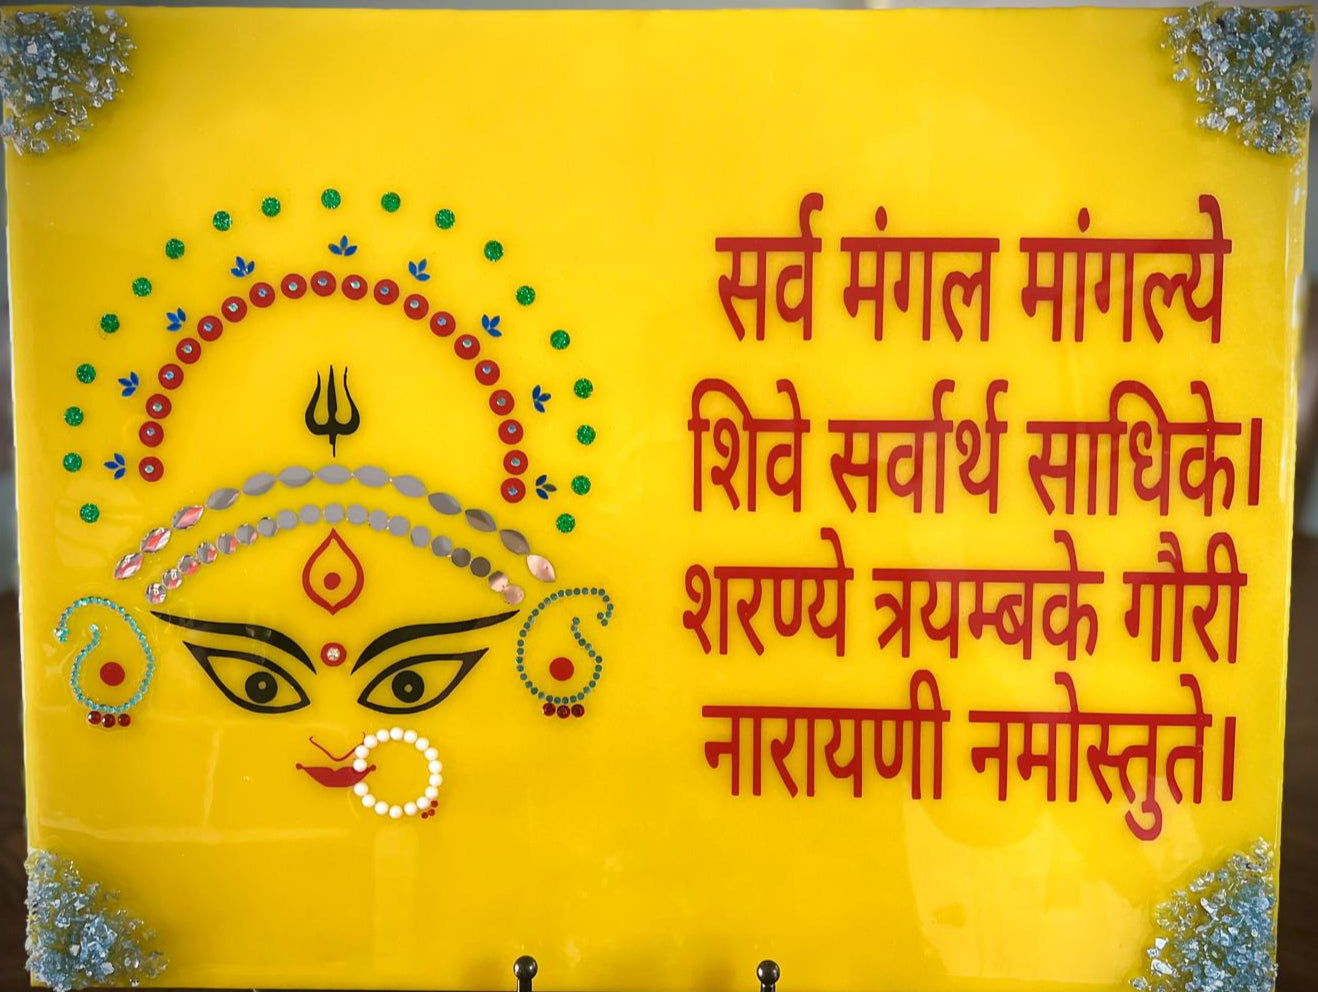 सर्व मंगल मांगल्ये
शिवे सर्वार्थ साधिके।
शरण्ये त्रयम्बके गौरी
नारायणी नमोस्तुते।